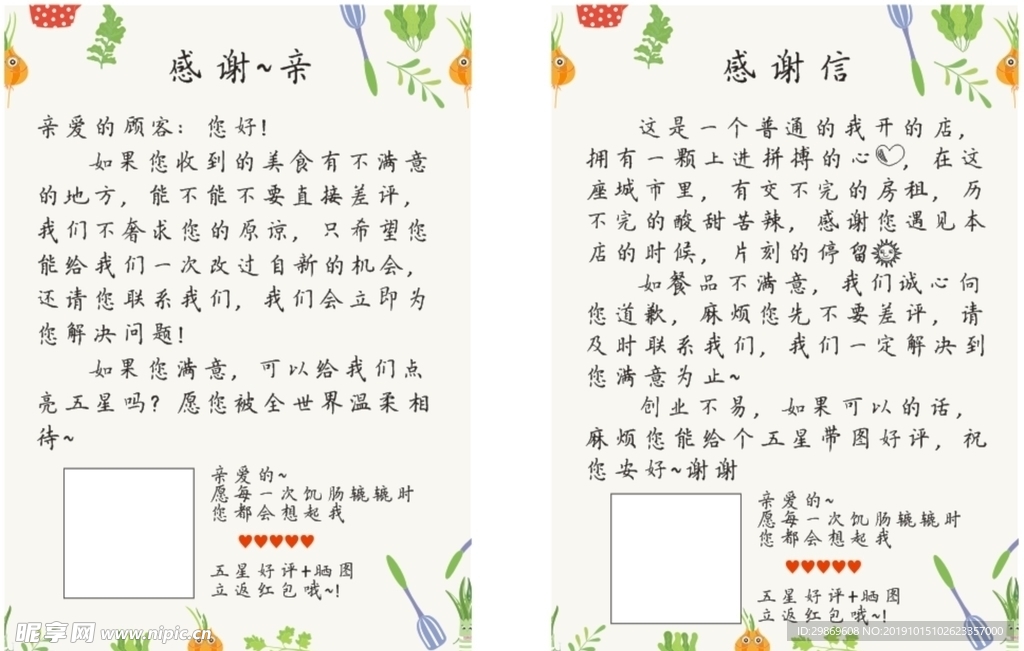 感谢~亲
亲爱的顾客：您好!
如果您收到的美食有不满意
的地方，能不能不要直接差评，
我们不奢求您的原谅，只希望您
能给我们一次改过自新的机会，
还请您联系我们，我们会立即为
您解决问题!
如果您满意，可以给我们点
亮五星吗？愿您被全世界温柔相
待~
亲爱的~
愿每一次饥肠辘辘时
您都会想起我
五星好评+晒图
立返红包哦~!
感谢信
这是一个普通的我开的店，
拥有一颗上进拼搏的心，在这
座城市里，有交不完的房租，历
不完的酸甜苦辣，感谢您遇见本
店的时候，片刻的停留
如餐品不满意，我们诚心向
您道歉，麻烦您先不要差评，请
及时联系我们，我们一定解决到
您满意为止~
创业不易，如果可以的话，
麻烦您能给个五星带图好评，祝
您安好~谢谢
亲爱的~
愿每一次饥肠辘辘时
您都会想起我
五星好评+晒图
立返红包哦~!
昵享网 www.nipic.cn
ID:29869608 NO:20191015102623357000